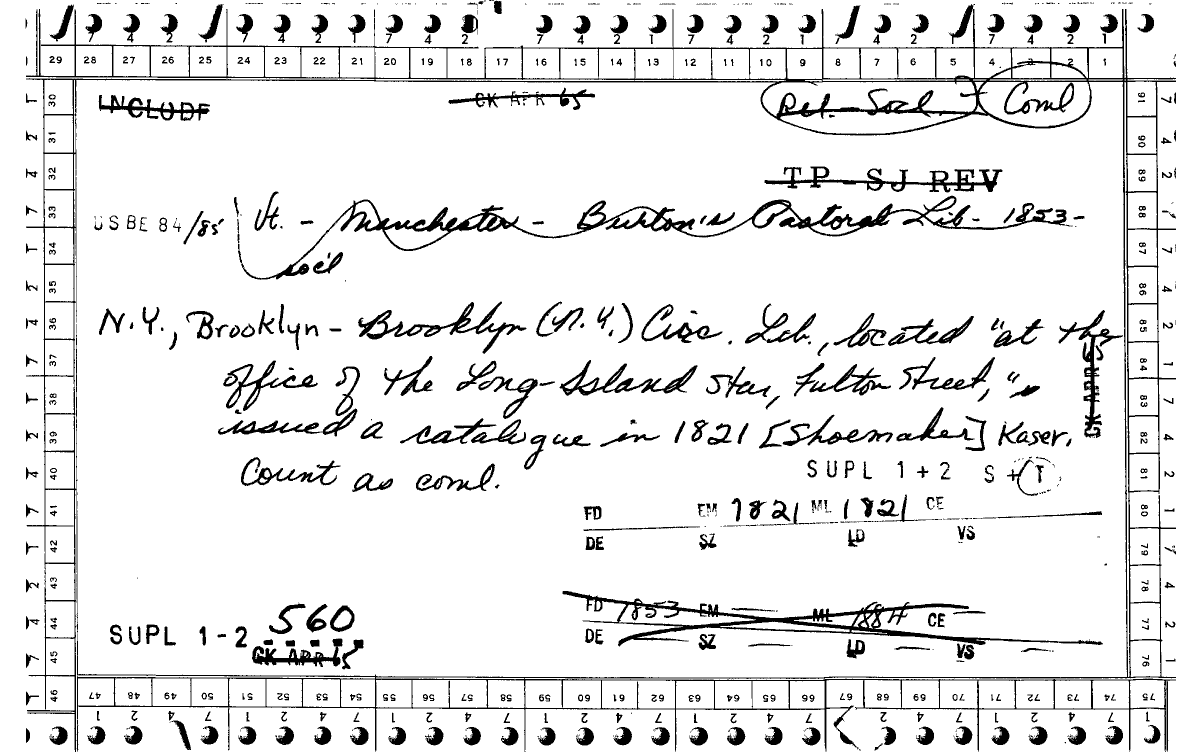 7 4 2 1 7 4 2 1 7 4 2 1 7 4 2 1 7 4 2 1
29 28 27 26 25 24 23 22 21 20 19 18 17 16 15 14 13 12 11 10 9 8 7 6 5 4 3 2 1
INCLUDE CK APR 65 Rel. - Socl. Coml
TP - SJ REV
USBE 84/85 Vt. - Manchester - Burton's Pastoral Lib - 1853 -
socl
N.Y., Brooklyn - Brooklyn (N.Y.) Circ. Lib., located "at the
office of the Long-Island Star, Fulton Street,"
issued a catalogue in 1821 [Shoemaker] Kaser.
Count as coml.
CK APR 65
SUPL 1 + 2 S + T
FD EM 1821 ML 1821 CE
DE SZ LD VS
FD 1853 EM — ML 1884 CE —
DE — SZ — LD — VS —
SUPL 1-2 560
CK APR 65
30 31 32 33 34 35 36 37 38 39 40 41 42 43 44 45 46
91 90 89 88 87 86 85 84 83 82 81 80 79 78 77 76 75
47 48 49 50 51 52 53 54 55 56 57 58 59 60 61 62 63 64 65 66 67 68 69 70 71 72 73 74 75